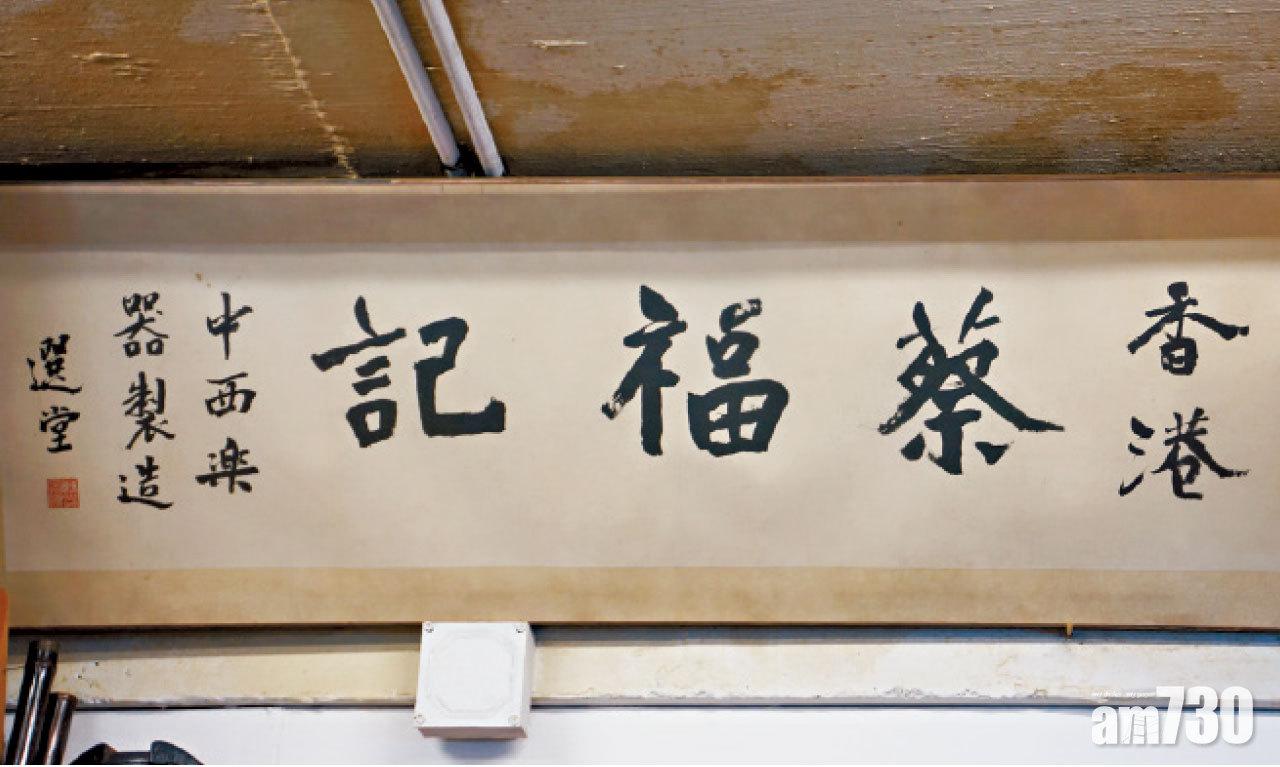 香港
蔡福記
中西楽
器製造
選堂
am730